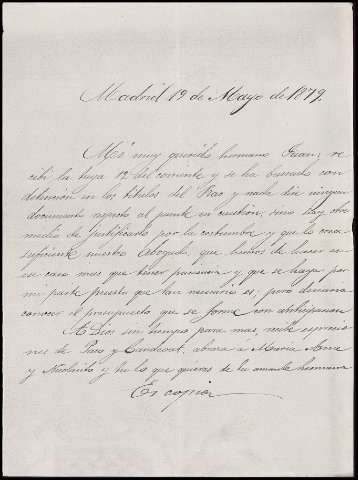 Madrid 19 de Mayo de 1879.
Mi muy querido hermano Juan; re-
cibí la tuya 12 del corriente y se ha buscado con
detención en los títulos del Rao y nada dice ningun
documento respeto al puente en cuestion, sino hay otro
medio de justificarlo por la costumbre y que lo crea
suficiente nuestro Abogado, que hemos de hacer en
ese caso mas que tener paciencia y que se haga por
mi parte puesto que tan necesario es; pero deseara
conocer el presupuesto que se forme con anticipacion
A Dios sin tiempo para mas, mil espresio-
nes de Paco y abraza á Maria Ana
y Nicolasito y tu lo que quieras de tu amante hermana
Es copia